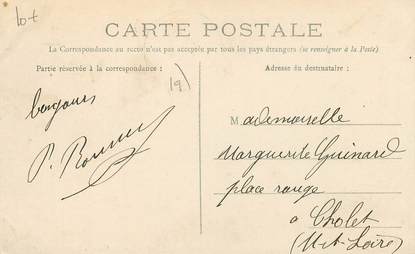 lot
CARTE POSTALE
La Correspondance au recto n'est pas acceptée par tous les pays étrangers (se renseigner à la Poste)
Partie réservée à la correspondance :
Adresse du destinataire :
19)
bonjour
P.
Mademoiselle
Marguerite Guinard
place rouge
à Cholet
(M-et-Loire)